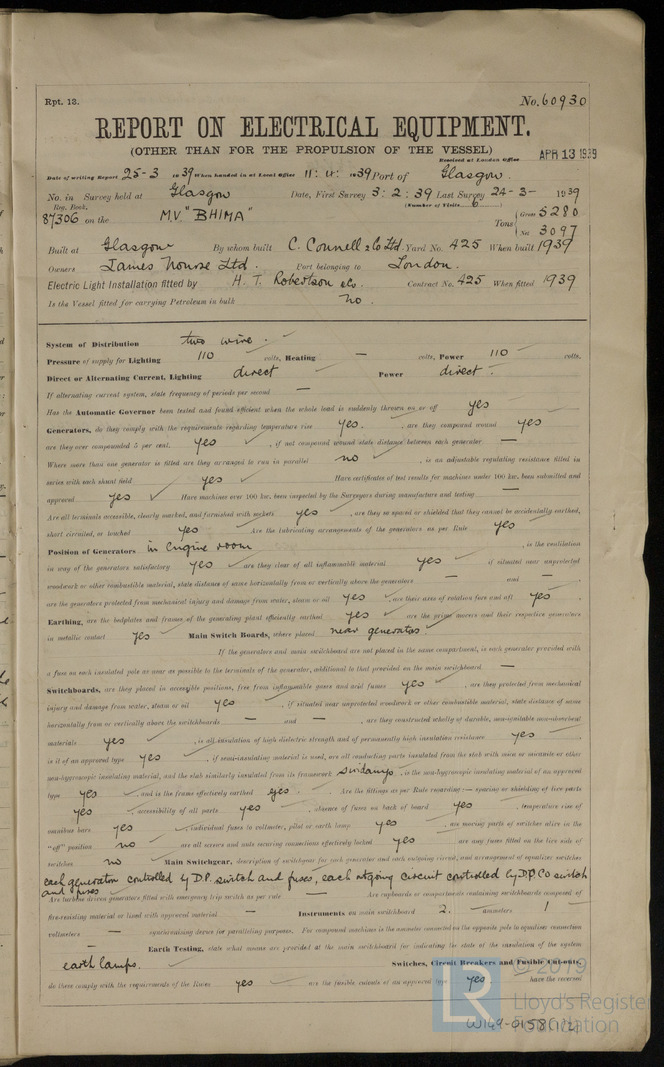 Rpt. 13.
No. 60930
REPORT ON ELECTRICAL EQUIPMENT.
(OTHER THAN FOR THE PROPULSION OF THE VESSEL)
Received at London Office APR 13 1939
Date of writing Report 25-3 1939 When handed in at Local Office 11.4. 1939 Port of Glasgow.
No. in Reg. Book. Survey held at Glasgow Date, First Survey 3:2:39 Last Survey 24-3- 1939
(Number of Visits 6)
87306 on the M.V. "BHIMA" Tons { Gross 5280
Net 3097
Built at Glasgow By whom built C. Connell & Co Ltd. Yard No. 425 When built 1939
Owners James Nourse Ltd. Port belonging to London.
Electric Light Installation fitted by H. T. Robertson & Co. Contract No. 425 When fitted 1939
Is the Vessel fitted for carrying Petroleum in bulk no.
System of Distribution two wire.
Pressure of supply for Lighting 110 volts, Heating — volts, Power 110 volts.
Direct or Alternating Current, Lighting direct Power direct.
If alternating current system, state frequency of periods per second —
Has the Automatic Governor been tested and found efficient when the whole load is suddenly thrown on or off yes
Generators, do they comply with the requirements regarding temperature rise yes. , are they compound wound yes
are they over compounded 5 per cent. yes , if not compound wound state distance between each generator —
Where more than one generator is fitted are they arranged to run in parallel no , is an adjustable regulating resistance fitted in
series with each shunt field yes Have certificates of test results for machines under 100 kw. been submitted and
approved yes Have machines over 100 kw. been inspected by the Surveyors during manufacture and testing —
Are all terminals accessible, clearly marked, and furnished with sockets yes , are they so spaced or shielded that they cannot be accidentally earthed,
short circuited, or touched yes Are the lubricating arrangements of the generators as per Rule yes
Position of Generators in Engine room , is the ventilation
in way of the generators satisfactory yes are they clear of all inflammable material yes if situated near unprotected
woodwork or other combustible material, state distance of same horizontally from or vertically above the generators — and —
are the generators protected from mechanical injury and damage from water, steam or oil yes , are their axes of rotation fore and aft yes.
Earthing, are the bedplates and frames of the generating plant efficiently earthed yes are the prime movers and their respective generators
in metallic contact yes Main Switch Boards, where placed near generators
If the generators and main switchboard are not placed in the same compartment, is each generator provided with
a fuse on each insulated pole as near as possible to the terminals of the generator, additional to that provided on the main switchboard —
Switchboards, are they placed in accessible positions, free from inflammable gases and acid fumes yes , are they protected from mechanical
injury and damage from water, steam or oil yes , if situated near unprotected woodwork or other combustible material, state distance of same
horizontally from or vertically above the switchboards — and — , are they constructed wholly of durable, non-ignitable non-absorbent
materials yes , is all insulation of high dielectric strength and of permanently high insulation resistance yes
is it of an approved type yes , if semi-insulating material is used, are all conducting parts insulated from the slab with mica or micanite or other
non-hygroscopic insulating material, and the slab similarly insulated from its framework sindanyo , is the non-hygroscopic insulating material of an approved
type yes , and is the frame effectively earthed yes Are the fittings as per Rule regarding:— spacing or shielding of live parts
yes , accessibility of all parts yes , absence of fuses on back of board yes , temperature rise of
omnibus bars yes , individual fuses to voltmeter, pilot or earth lamp yes , are moving parts of switches alive in the
"off" position no are all screws and nuts securing connections effectively locked yes are any fuses fitted on the live side of
switches no Main Switchgear, description of switchgear for each generator and each outgoing circuit, and arrangement of equalizer switches
each generator controlled by D.P. switch and fuses, each outgoing circuit controlled by D.P. CO switch
and fuses
Are turbine driven generators fitted with emergency trip switch as per rule — Are cupboards or compartments containing switchboards composed of
fire-resisting material or lined with approved material — Instruments on main switchboard 2. ammeters 1
voltmeters — synchronising device for paralleling purposes. For compound machines is the ammeter connected on the opposite pole to equaliser connection
— Earth Testing, state what means are provided at the main switchboard for indicating the state of the insulation of the system
earth lamps. Switches, Circuit Breakers and Fusible Cut-outs,
do these comply with the requirements of the Rules yes are the fusible cutouts of an approved type yes have the reversed
© 2019
LR
Lloyd's Register
Foundation
W149-0158 (1/2)